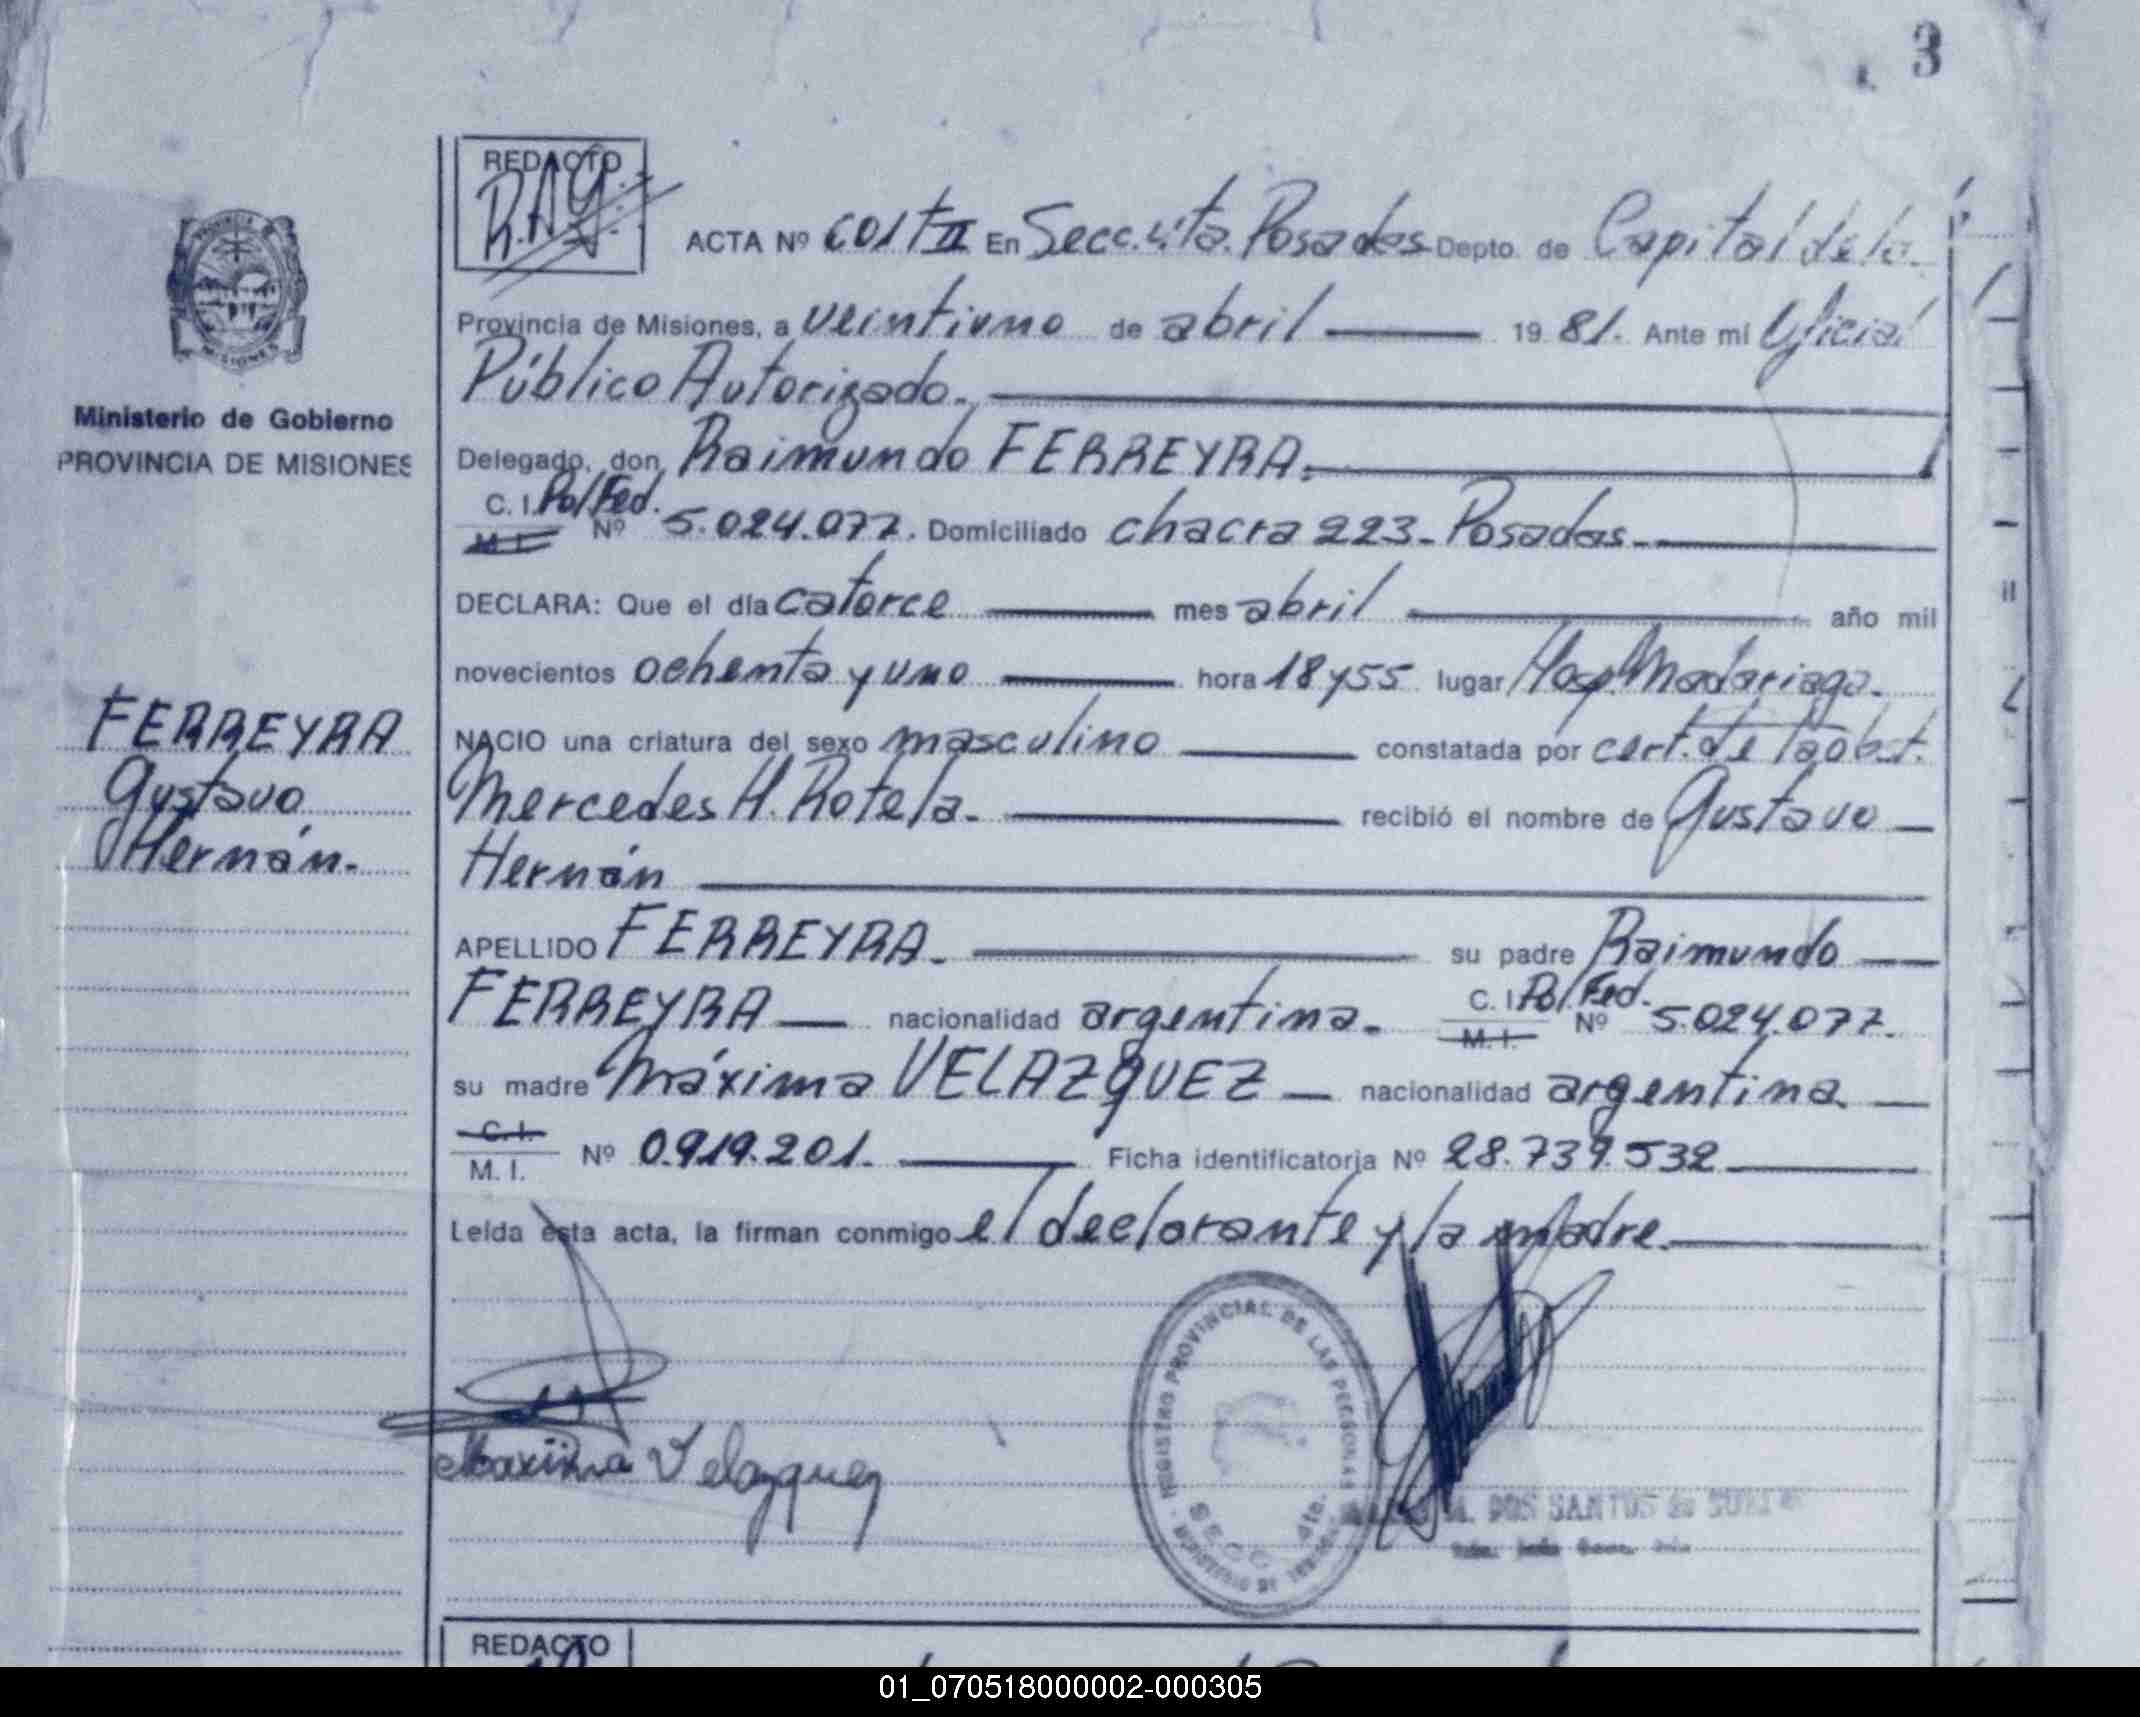 3
REDACTO
R.A.G.
ACTA Nº 601 TII En Secc. 4ta. Posadas Depto. de Capital de la
Provincia de Misiones, a veintiuno de abril 19 81. Ante mí Oficial
Público Autorizado.
Delegado, don Raimundo FERREYRA.
C. I. Pol. Fed.
M. I. Nº 5.024.077. Domiciliado chacra 223 - Posadas
DECLARA: Que el día catorce mes abril año mil
novecientos ochenta y uno hora 18 y 55 lugar Hosp. Madariaga.
NACIO una criatura del sexo masculino constatada por cert. de la obst.
Mercedes H. Rotela. recibió el nombre de Gustavo
Hernán
APELLIDO FERREYRA. su padre Raimundo
FERREYRA nacionalidad argentina. C. I. Pol. Fed. M. I. Nº 5.024.077.
su madre Máxima VELAZQUEZ nacionalidad argentina.
C. I.
M. I. Nº 0.919.201. Ficha identificatoria Nº 28.739.532
Leída esta acta, la firman conmigo el declarante y la madre.
Maxima Velazquez
REGISTRO PROVINCIAL DE LAS PERSONAS
SECC. 4ta.
DOS SANTOS de
REDACTO
PROVINCIA
MISIONES
Ministerio de Gobierno
PROVINCIA DE MISIONES
FERREYRA
Gustavo
Hernán.
01_070518000002-000305